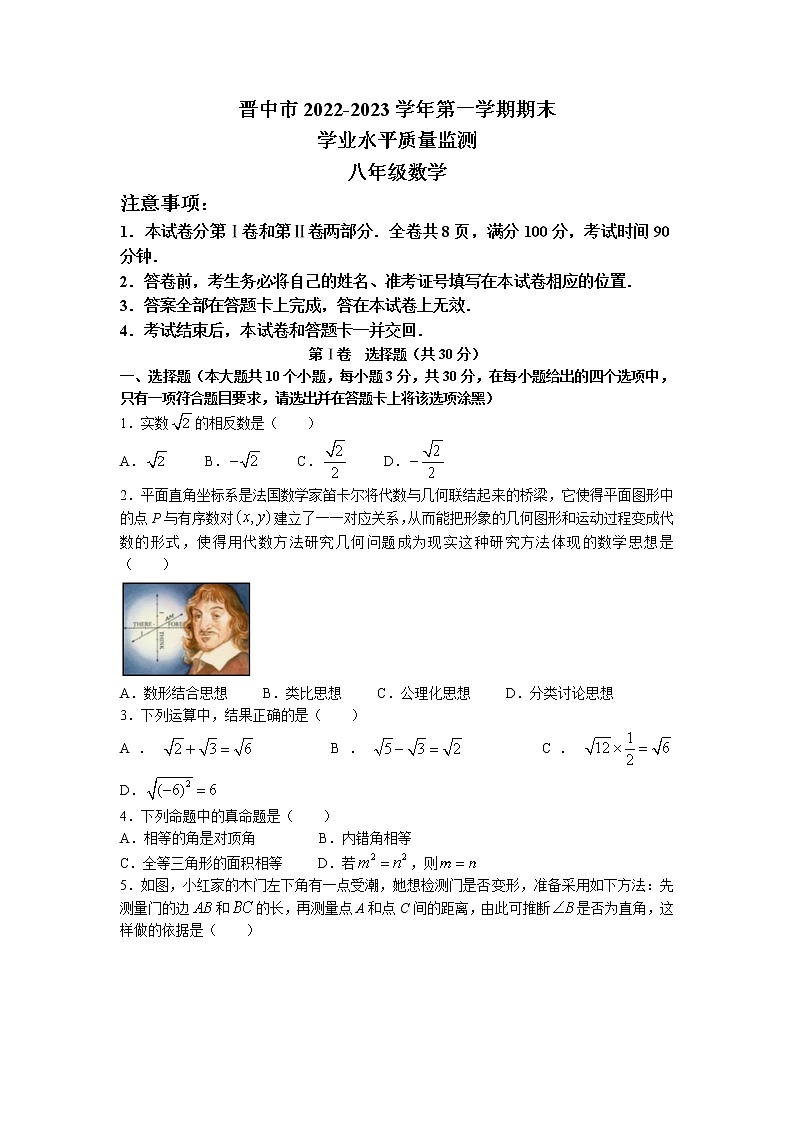 晋中市 2022-2023 学年第一学期期末
学业水平质量监测
八年级数学
注意事项：
1．本试卷分第Ⅰ卷和第Ⅱ卷两部分．全卷共 8 页，满分 100 分，考试时间 90
分钟．
2．答卷前，考生务必将自己的姓名、准考证号填写在本试卷相应的位置．
3．答案全部在答题卡上完成，答在本试卷上无效．
4．考试结束后，本试卷和答题卡一并交回．
第Ⅰ卷 选择题（共 30 分）
一、选择题（本大题共 10 个小题，每小题 3 分，共 30 分，在每小题给出的四个选项中，
只有一项符合题目要求，请选出并在答题卡上将该选项涂黑）
1．实数 √2 的相反数是（　　）
A．√2　　B．−√2　　C．√2/2　　D．−√2/2
2．平面直角坐标系是法国数学家笛卡尔将代数与几何联结起来的桥梁，它使得平面图形中
的点 P 与有序数对 (x, y) 建立了一一对应关系，从而能把形象的几何图形和运动过程变成代
数的形式，使得用代数方法研究几何问题成为现实这种研究方法体现的数学思想是
（　　）
THERE - FORE
I AM
I THINK
A．数形结合思想　　B．类比思想　　C．公理化思想　　D．分类讨论思想
3．下列运算中，结果正确的是（　　）
A．√2+√3=√6　　B．√5−√3=√2　　C．√12×1/2=√6
D．√((−6)²)=6
4．下列命题中的真命题是（　　）
A．相等的角是对顶角　　B．内错角相等
C．全等三角形的面积相等　　D．若 m²=n²，则 m=n
5．如图，小红家的木门左下角有一点受潮，她想检测门是否变形，准备采用如下方法：先
测量门的边 AB 和 BC 的长，再测量点 A 和点 C 间的距离，由此可推断∠B 是否为直角，这
样做的依据是（　　）